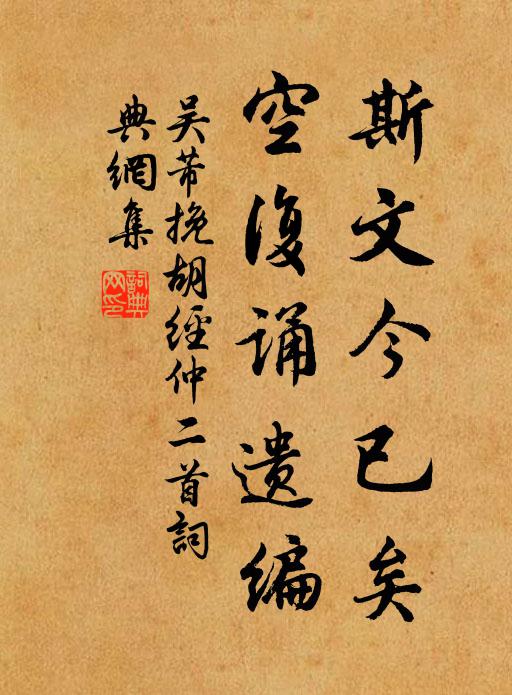 斯文今已矣
空復誦遺編
吴芾挽胡經仲二首詞
典網集
詞典網印